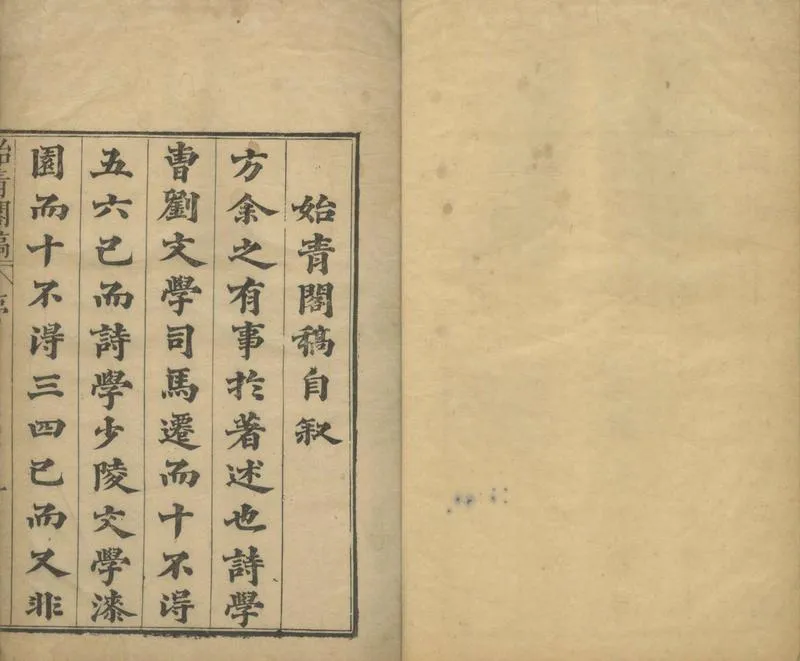 始青閣稿自叙
方余之有事於著述也詩學
曹劉文學司馬遷而十不得
五六已而詩學少陵文學漆
園而十不得三四已而又非
始青閣稿 序